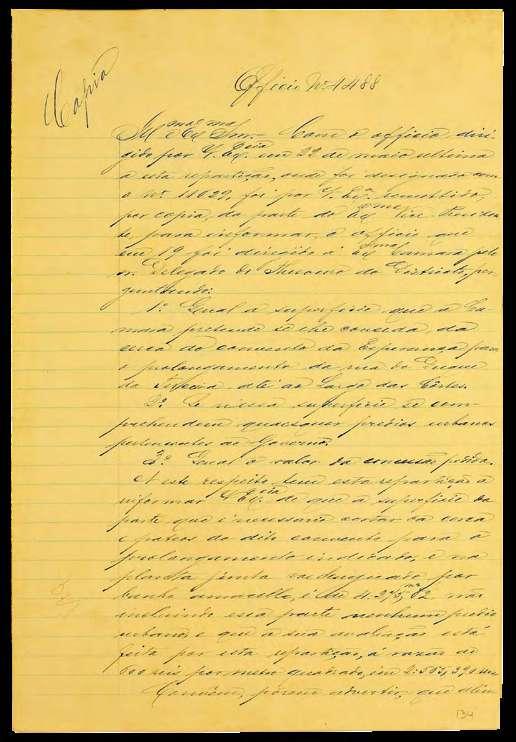 Copia
Officio Nº 1488
Ill.mo e Ex.mo Snr. Com o officio diri-
gido por V. Ex.cia em 22 de maio ultimo
a esta repartição, onde foi designado com
o Nº 11029, foi por V. Ex.a remettido,
por copia, da parte do Ex.mo Vice Presiden-
te para informar, o officio que
em 19 foi dirigido á Ex.ma Camara pelo
sr. Delegado do Thesouro do Districto, per-
guntando:
1º Qual a superficie que a Ca-
mara pretende se lhe conceda da
cerca do convento da Esperança para
o prolongamento da rua do Duque
da Terceira até ao Largo das Côrtes.
2º Se nessa superficie se com-
prehendem quaesquer predios urbanos
pertencentes ao Governo.
3º Qual o valor da concessão pedida.
A este respeito tem esta repartição a
informar V. Ex.cia de que a superficie da
parte que é necessario cortar da cerca
e pateos do dito convento para o
prolongamento indicado, e na
planta junta vae designado por
tinta amarella, é de não
incluindo essa parte nenhum predio
urbano e que a sua avaliação está
feita por esta repartição, á razão de
600 reis por metro quadrado, em
Convém, porem advertir, que alem
134